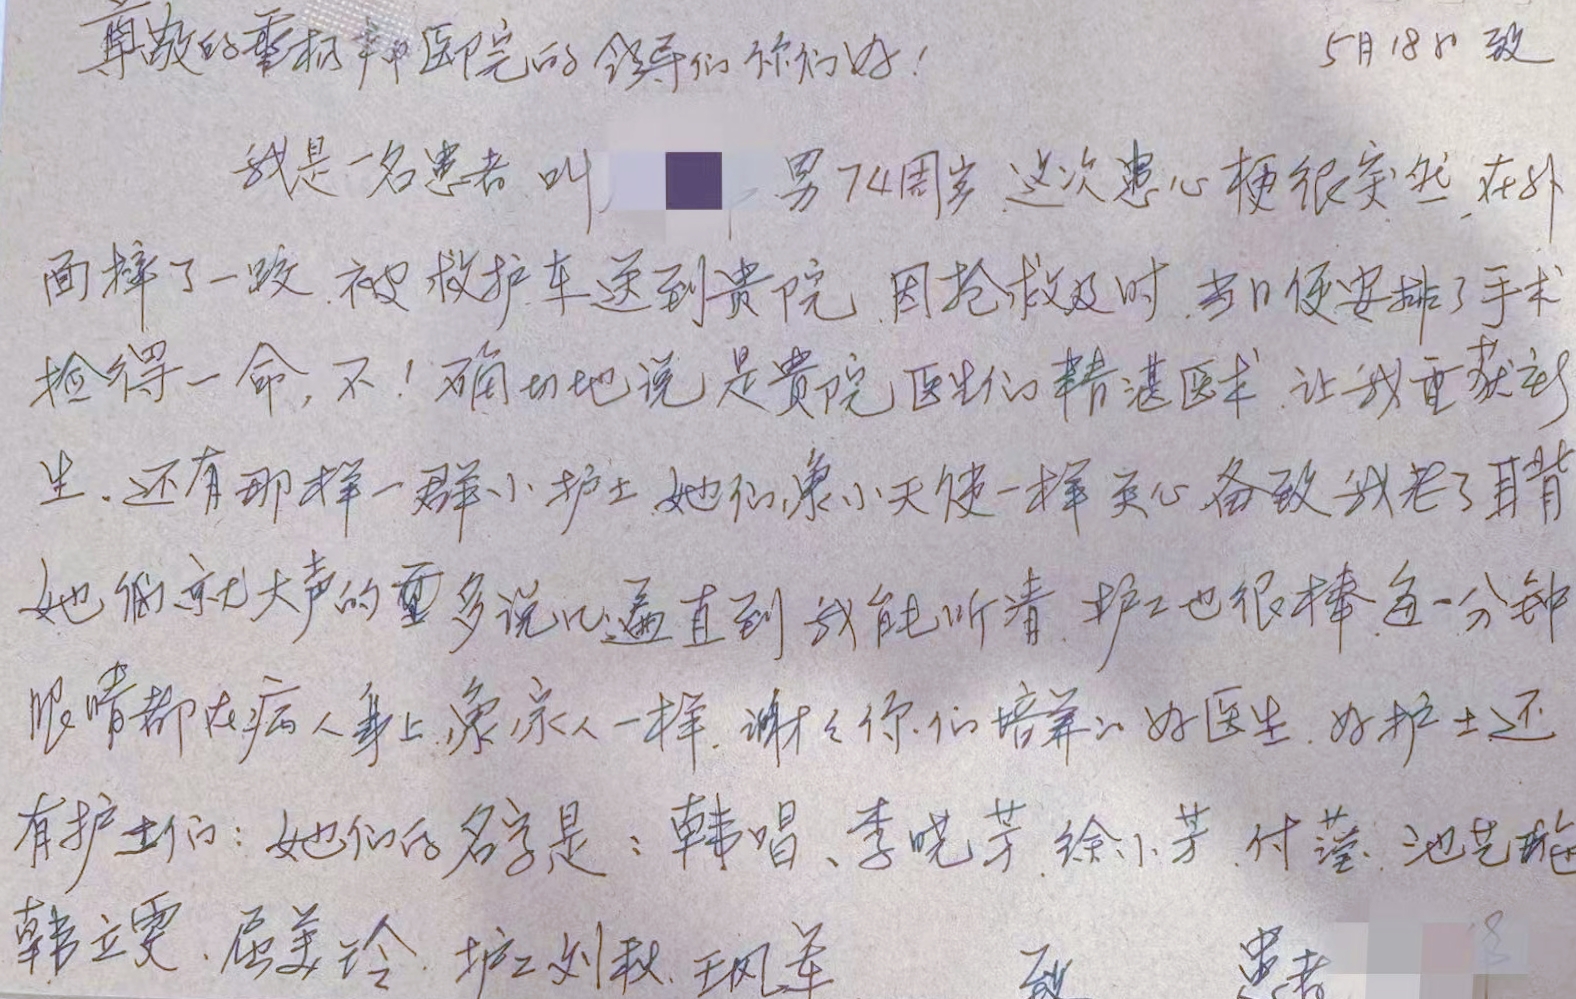 尊敬的 医院的领导们你们好！ 5月18日 致
我是一名患者 叫 男74周岁 这次患心梗很突然,在外
面摔了一跤.被救护车送到贵院.因抢救及时.当日便安排了手术
捡得一命,不！确切地说是贵院医生们精湛医术.让我重获新
生.还有那样一群小护士.她们象小天使一样关心备致.我老了耳背
她们就大声的重多说几遍直到我能听清.护工也很棒.每一分钟
眼睛都在病人身上.象家人一样.谢谢你们培养的好医生.好护士还
有护士们:她们的名字是:韩唱、李晓芳.徐小芳.付莹.池艺
韩立雯.屈美玲.护工刘秋.王凤 致 患者